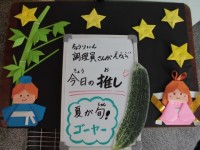 ちょうりいん
調理員さんがえらぶ
きょう お
今日の推し
夏が旬!
ゴーヤー